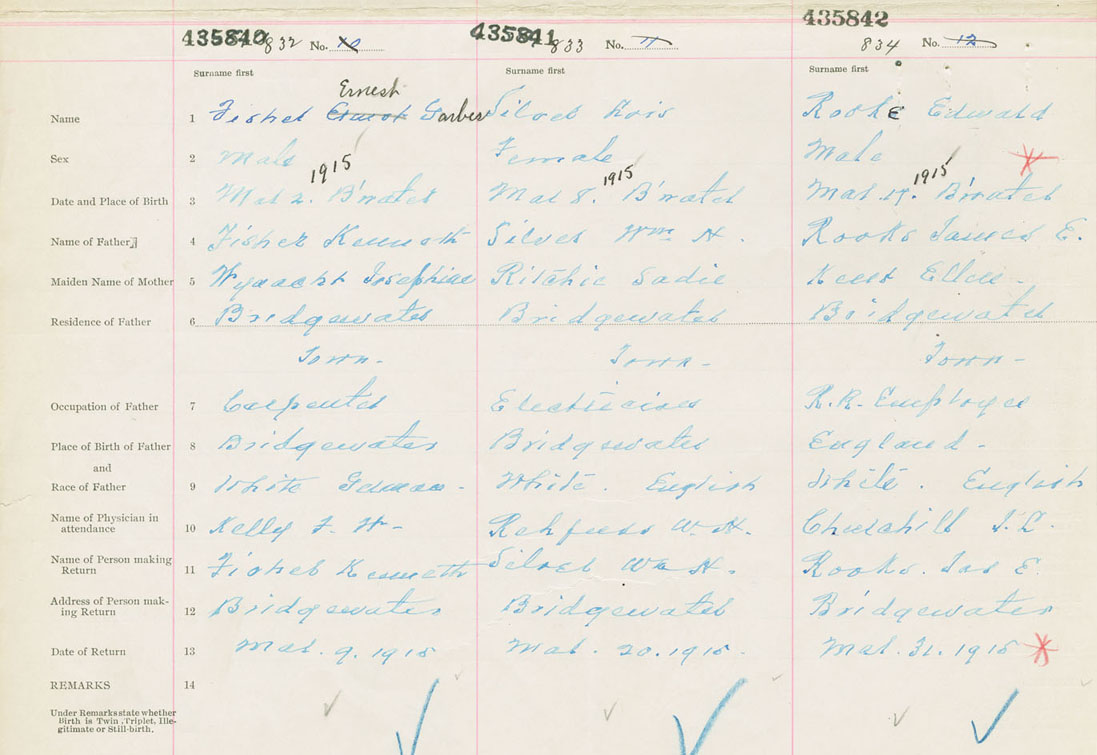 435840 832 No. 10 435841 833 No. 11 435842 834 No. 12
Surname first Surname first Surname first
Ernest
Name 1 Fisher Ernest Garber Silver Lois Rooke Edward
Sex 2 Male Female Male
1915 1915 1915
Date and Place of Birth 3 Mar 2. B'water Mar 8. B'water Mar. 17. B'water
Name of Father 4 Fisher Kenneth Silver Wm H. Rooks James E.
Maiden Name of Mother 5 Josephine Ritchie Sadie Ellen -
Residence of Father 6 Bridgewater Bridgewater Bridgewater
Town - Town - Town -
Occupation of Father 7 Carpenter Electrician R.R. Employee
Place of Birth of Father 8 Bridgewater Bridgewater England -
and
Race of Father 9 White German - White . English White . English
Name of Physician in
attendance 10 Kelly F. W- Rehfuss W. N. Churchill
Name of Person making
Return 11 Fisher Kenneth Silver Wm H. Rooks. Jas E.
Address of Person mak-
ing Return 12 Bridgewater Bridgewater Bridgewater
Date of Return 13 Mar. 9. 1915 Mar. 20. 1915. Mar. 31. 1915
REMARKS 14
Under Remarks state whether
Birth is Twin, Triplet, Ille-
gitimate or Still-birth.